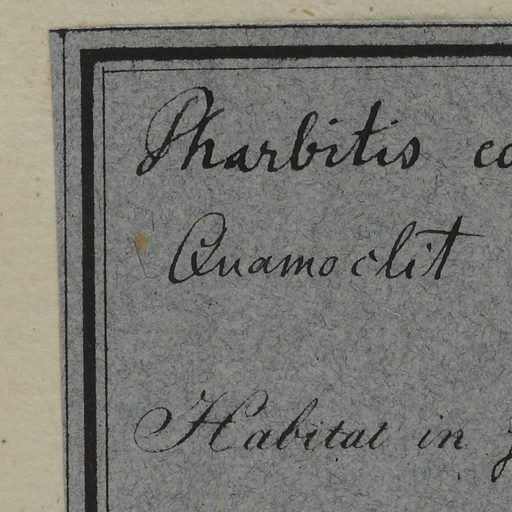 Pharbitis
Quamoclit
Habitat in